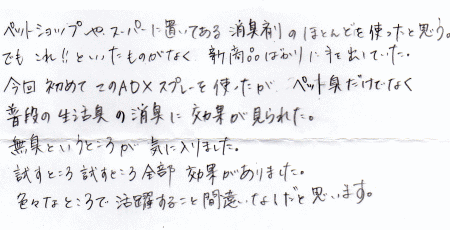 ペットショップや、スーパーに置いてある 消臭剤のほとんどを使ったと思う。
でも これ!!といったものがなく 新商品ばかりに手を出していた。
今回 初めて このAOXスプレーを使ったが ペット臭だけでなく
普段の生活臭の消臭に 効果が見られた。
無臭というところが 気に入りました。
試すところ試すところ全部 効果がありました。
色々なところで 活躍すること間違いなしだと思います。